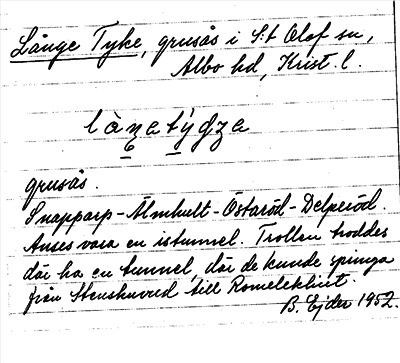 Långe Tyke, grusås i S:t Olof sn,
Albo hd, Krist. l.
grusås.
Snapparp - Älmhult - Östaröd - Delperöd.
Anses vara en istunnel. Trollen troddes
där ha en tunnel, där de kunde springa
från Stenshuvud till Romeleklint.
B. Ejder 1952.